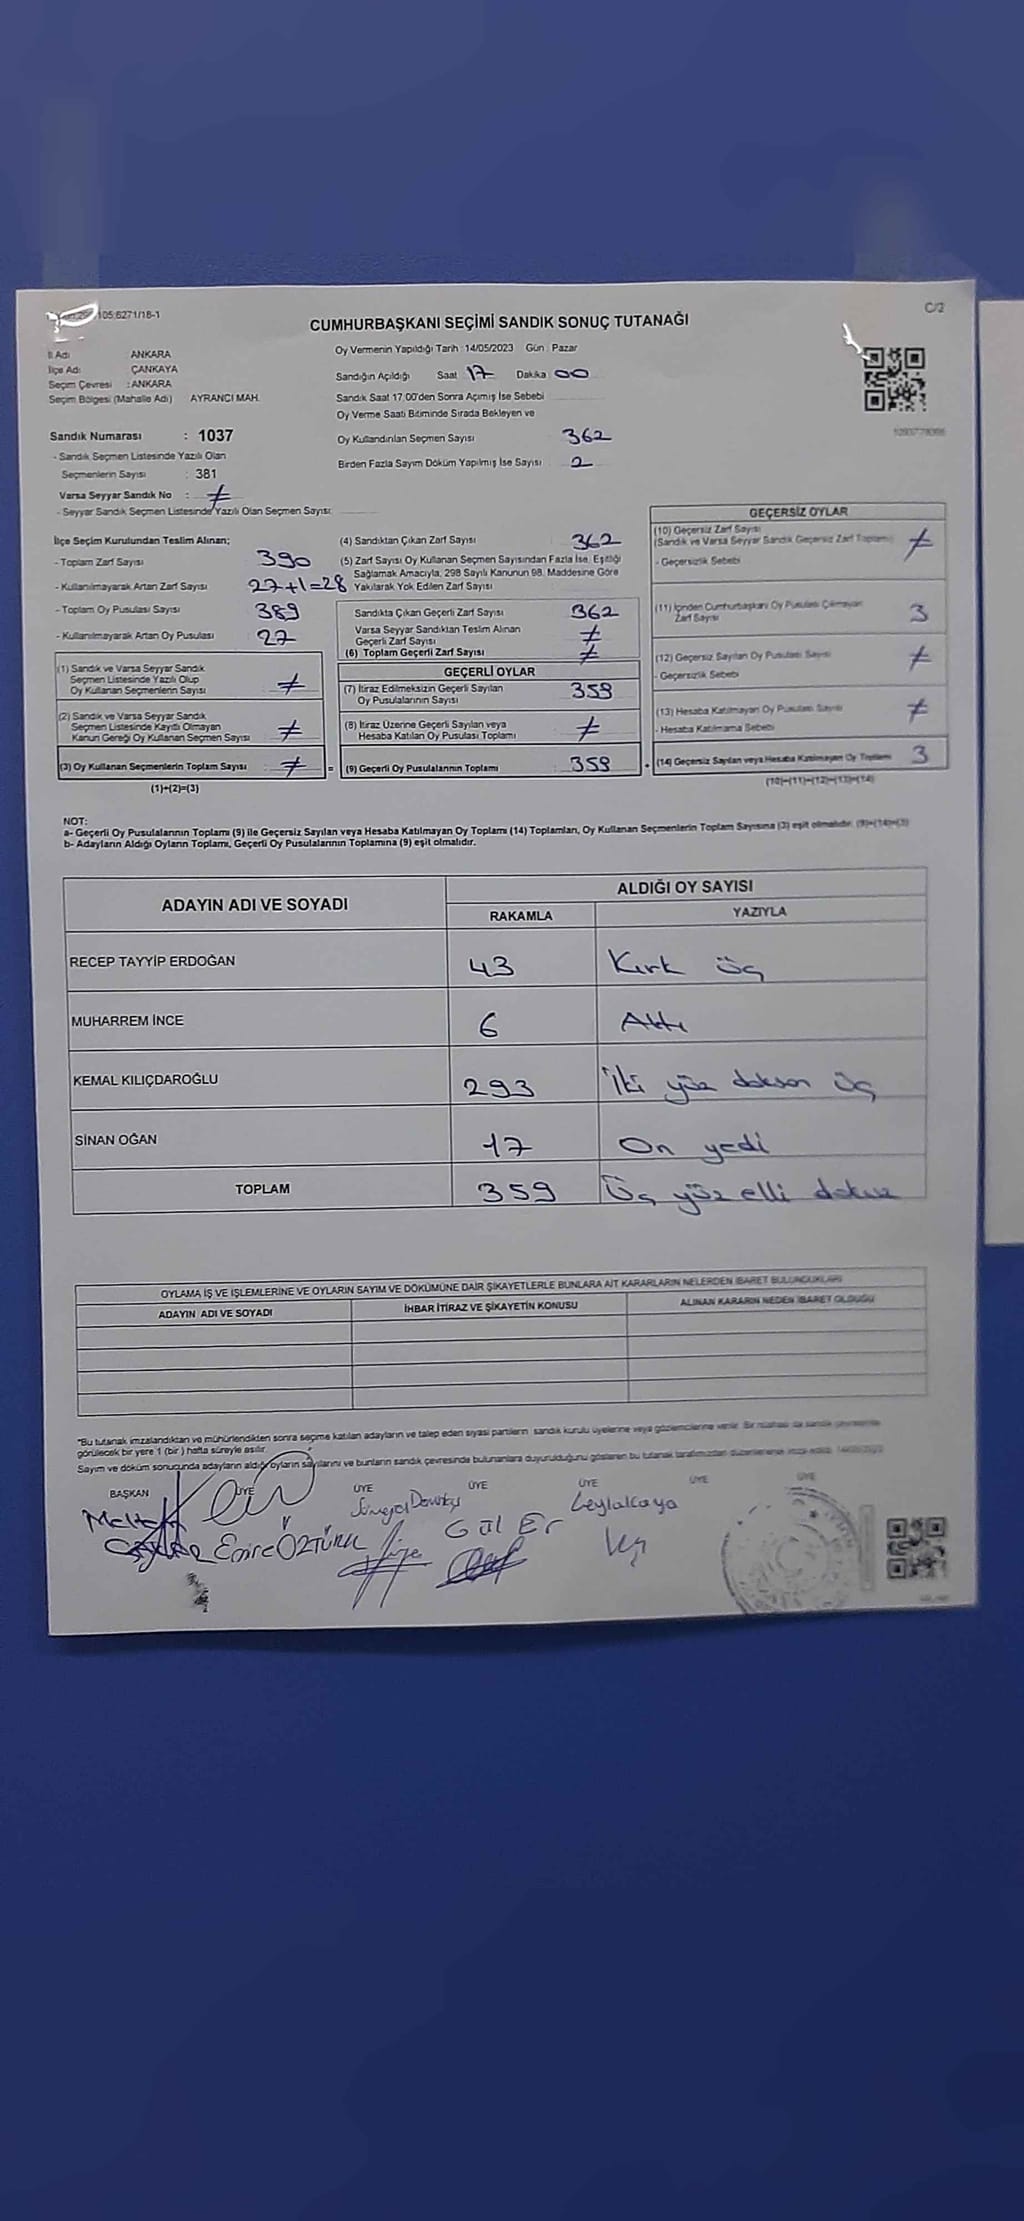 105:6271/18-1
C/2
CUMHURBAŞKANI SEÇİMİ SANDIK SONUÇ TUTANAĞI
İl Adı ANKARA
İlçe Adı ÇANKAYA
Seçim Çevresi : ANKARA
Seçim Bölgesi (Mahalle Adı) AYRANCI MAH.
Oy Vermenin Yapıldığı Tarih :14/05/2023 Gün : Pazar
Sandığın Açıldığı Saat 17 Dakika 00
Sandık Saat 17.00'den Sonra Açımış İse Sebebi
Oy Verme Saati Bitiminde Sırada Bekleyen ve
Oy Kullandırılan Seçmen Sayısı 362
Birden Fazla Sayım Döküm Yapılmış İse Sayısı 2
Sandık Numarası : 1037
- Sandık Seçmen Listesinde Yazılı Olan
Seçmenlerin Sayısı : 381
Varsa Seyyar Sandık No : ≠
- Seyyar Sandık Seçmen Listesinde Yazılı Olan Seçmen Sayısı:
İlçe Seçim Kurulundan Teslim Alınan;
- Toplam Zarf Sayısı 390
- Kullanılmayarak Artan Zarf Sayısı 27+1=28
- Toplam Oy Pusulası Sayısı 389
- Kullanılmayarak Artan Oy Pusulası 27
(1) Sandık ve Varsa Seyyar Sandık
Seçmen Listesinde Yazılı Olup
Oy Kullanan Seçmenlerin Sayısı ≠
(2) Sandık ve Varsa Seyyar Sandık
Seçmen Listesinde Kayıtlı Olmayan
Kanun Gereği Oy Kullanan Seçmen Sayısı ≠
(3) Oy Kullanan Seçmenlerin Toplam Sayısı ≠
(1)+(2)=(3)
(4) Sandıktan Çıkan Zarf Sayısı 362
(5) Zarf Sayısı Oy Kullanan Seçmen Sayısından Fazla İse, Eşitliği
Sağlamak Amacıyla, 298 Sayılı Kanunun 98. Maddesine Göre
Yakılarak Yok Edilen Zarf Sayısı
Sandıkta Çıkan Geçerli Zarf Sayısı 362
Varsa Seyyar Sandıktan Teslim Alınan
Geçerli Zarf Sayısı ≠
(6) Toplam Geçerli Zarf Sayısı ≠
GEÇERLİ OYLAR
(7) İtiraz Edilmeksizin Geçerli Sayılan
Oy Pusulalarının Sayısı 359
(8) İtiraz Üzerine Geçerli Sayılan veya
Hesaba Katılan Oy Pusulası Toplamı ≠
= (9) Geçerli Oy Pusulalarının Toplamı 359
GEÇERSİZ OYLAR
(10) Geçersiz Zarf Sayısı
(Sandık ve Varsa Seyyar Sandık Geçersiz Zarf Toplamı) ≠
- Geçersizlik Sebebi
(11) İçinden Cumhurbaşkanı Oy Pusulası Çıkmayan
Zarf Sayısı 3
(12) Geçersiz Sayılan Oy Pusulası Sayısı ≠
- Geçersizlik Sebebi
(13) Hesaba Katılmayan Oy Pusulası Sayısı ≠
- Hesaba Katılmama Sebebi
+ (14) Geçersiz Sayılan veya Hesaba Katılmayan Oy Toplamı 3
(10)+(11)+(12)+(13)=(14)
NOT:
a- Geçerli Oy Pusulalarının Toplamı (9) ile Geçersiz Sayılan veya Hesaba Katılmayan Oy Toplamı (14) Toplamları, Oy Kullanan Seçmenlerin Toplam Sayısına (3) eşit olmalıdır. (9)+(14)=(3)
b- Adayların Aldığı Oyların Toplamı, Geçerli Oy Pusulalarının Toplamına (9) eşit olmalıdır.
ADAYIN ADI VE SOYADI ALDIĞI OY SAYISI
RAKAMLA YAZIYLA
RECEP TAYYİP ERDOĞAN 43 Kırk üç
MUHARREM İNCE 6 Altı
KEMAL KILIÇDAROĞLU 293 İki yüz doksan üç
SİNAN OĞAN 17 On yedi
TOPLAM 359 Üç yüz elli dokuz
OYLAMA İŞ VE İŞLEMLERİNE VE OYLARIN SAYIM VE DÖKÜMÜNE DAİR ŞİKAYETLERLE BUNLARA AİT KARARLARIN NELERDEN İBARET BULUNDUKLARI
ADAYIN ADI VE SOYADI İHBAR İTİRAZ VE ŞİKAYETİN KONUSU ALINAN KARARIN NEDEN İBARET OLDUĞU
*Bu tutanak imzalandıktan ve mühürlendikten sonra seçime katılan adayların ve talep eden siyasi partilerin sandık kurulu üyelerine veya gözlemcilerine verilir. Bir nüshası da sandık çevresinde
görülecek bir yere 1 (bir) hafta süreyle asılır.
Sayım ve döküm sonucunda adayların aldığı oyların sayılarını ve bunların sandık çevresinde bulunanlara duyurulduğunu gösteren bu tutanak tarafımızdan düzenlenerek imza edildi. 14/05/2023
BAŞKAN ÜYE ÜYE ÜYE ÜYE ÜYE ÜYE
Emre ÖZTÜRK Gül Er Leylakaya